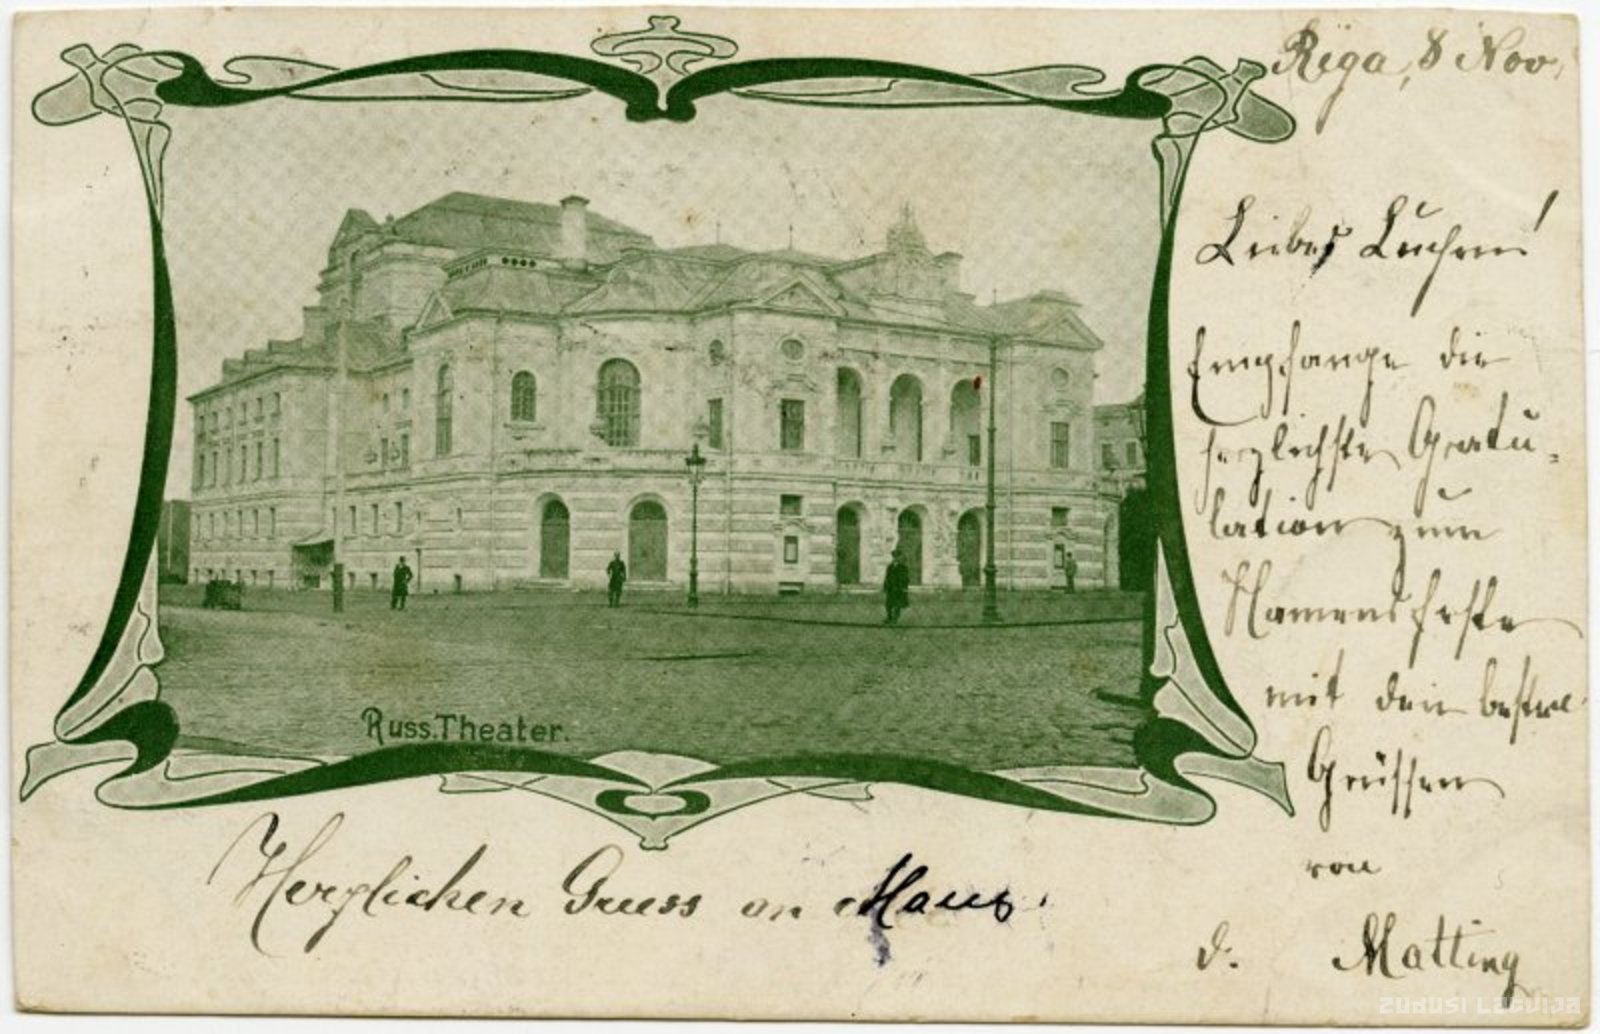 Riga, 8 Nov.
Liebes Luchen!
Empfange die
herzlichste Gratu-
lation zum
Namensfeste
mit den besten
Grüssen
von
d. Matting
Russ. Theater.
Herzlichen Gruss an Hans.
ZUDUSI LATVIJA